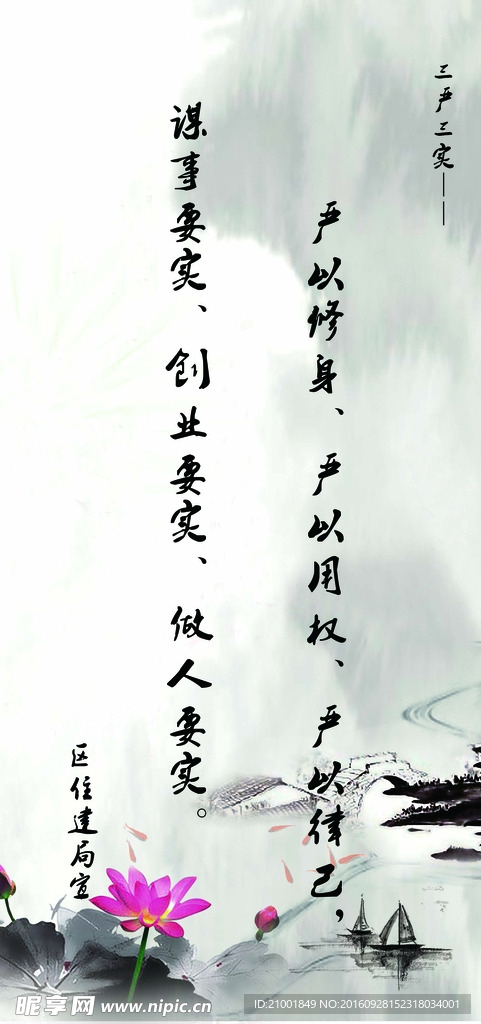 三严三实——
严以修身、严以用权、严以律己,
谋事要实、创业要实、做人要实。
区住建局宣
昵享网 www.nipic.cn
ID:21001849 NO:20160928152318034001